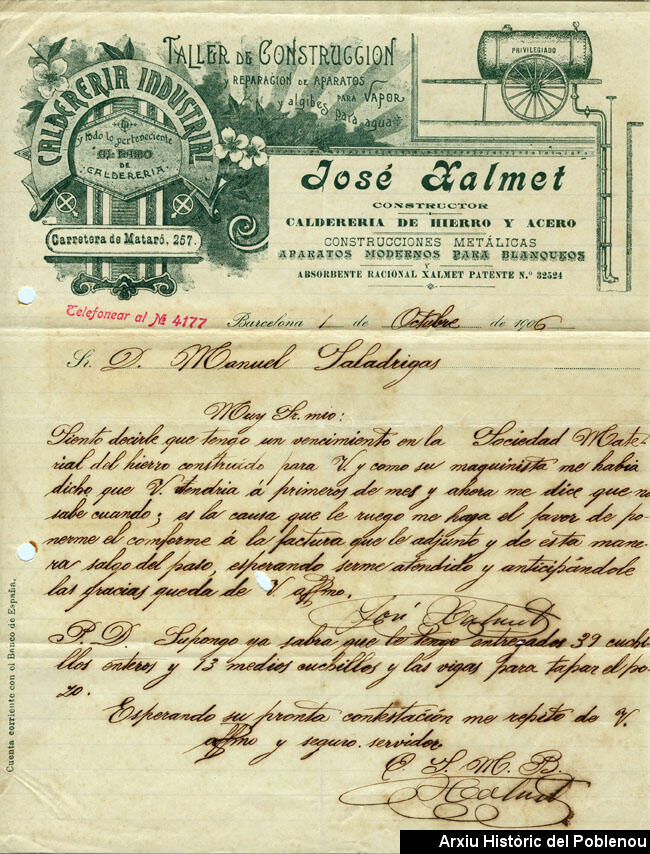 TALLER DE CONSTRUCCION
Y REPARACION DE APARATOS
PARA VAPOR
y algibes para agua
PRIVILEGIADO
CALDERERIA INDUSTRIAL
y todo lo perteneciente
AL RAMO
DE
CALDERERIA
Carretera de Mataró, 257.
José Xalmet
CONSTRUCTOR
CALDERERIA DE HIERRO Y ACERO
CONSTRUCCIONES METÁLICAS
APARATOS MODERNOS PARA BLANQUEOS
Y
ABSORBENTE RACIONAL XALMET PATENTE N.º 32524
Telefonear al № 4177
Barcelona 1 de Octobre de 1906
Sr. D. Manuel Saladrigas
Muy Sr. mio:
Siento decirle que tengo un vencimiento en la Sociedad Mate-
rial del hierro construido para V. y como su maquinista me habia
dicho que V. tendria á primeros de mes y ahora me dice que no
sabe cuando; es la causa que le ruego me haga el favor de po-
nerme el comforme á la factura que le adjunto y de esta mane-
ra salgo del paso, esperando serme atendido y anticipándole
las gracias queda de V. affmo.
José Xalmet
P. D. Supongo ya sabrá que le tengo entregados 39 cuchi-
llos enteros y 13 medios cuchillos y las vigas para tapar el po-
zo.
Esperando su pronta contestación me repito de V.
affmo y seguro servidor
E. S. M. B.
Xalmet
Cuenta corriente con el Banco de España.
Arxiu Històric del Poblenou